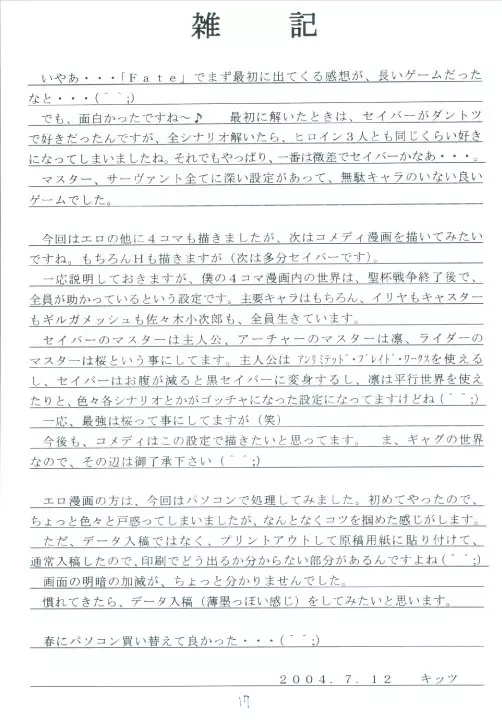 雑　記
いやあ・・・「Ｆａｔｅ」でまず最初に出てくる感想が、長いゲームだった
なと・・・(＾＾;)
でも、面白かったですね～♪　　最初に解いたときは、セイバーがダントツ
で好きだったんですが、全シナリオ解いたら、ヒロイン３人とも同じくらい好き
になってしまいましたね。それでもやっぱり、一番は微差でセイバーかなあ・・・。
マスター、サーヴァント全てに深い設定があって、無駄キャラのいない良い
ゲームでした。
今回はエロの他に４コマも描きましたが、次はコメディ漫画を描いてみたい
ですね。もちろんＨも描きますが（次は多分セイバーです）。
一応説明しておきますが、僕の４コマ漫画内の世界は、聖杯戦争終了後で、
全員が助かっているという設定です。主要キャラはもちろん、イリヤもキャスター
もギルガメッシュも佐々木小次郎も、全員生きています。
セイバーのマスターは主人公、アーチャーのマスターは凛、ライダーの
マスターは桜という事にしてます。主人公は ｱﾝﾘﾐﾃｯﾄﾞ･ﾌﾞﾚｲﾄﾞ･ﾜｰｸｽを使える
し、セイバーはお腹が減ると黒セイバーに変身するし、凛は平行世界を使え
たりと、色々各シナリオとかがゴッチャになった設定になってますけどね（＾＾;）
一応、最強は桜って事にしてますが（笑）
今後も、コメディはこの設定で描きたいと思ってます。　ま、ギャグの世界
なので、その辺は御了承下さい（＾＾;）
エロ漫画の方は、今回はパソコンで処理してみました。初めてやったので、
ちょっと色々と戸惑ってしまいましたが、なんとなくコツを掴めた感じがします。
ただ、データ入稿ではなく、プリントアウトして原稿用紙に貼り付けて、
通常入稿したので、印刷でどう出るか分からない部分があるんですよね（＾＾;）
画面の明暗の加減が、ちょっと分かりませんでした。
慣れてきたら、データ入稿（薄墨っぽい感じ）をしてみたいと思います。
春にパソコン買い替えて良かった・・・（＾＾;）
２００４．７．１２　　キッツ
17